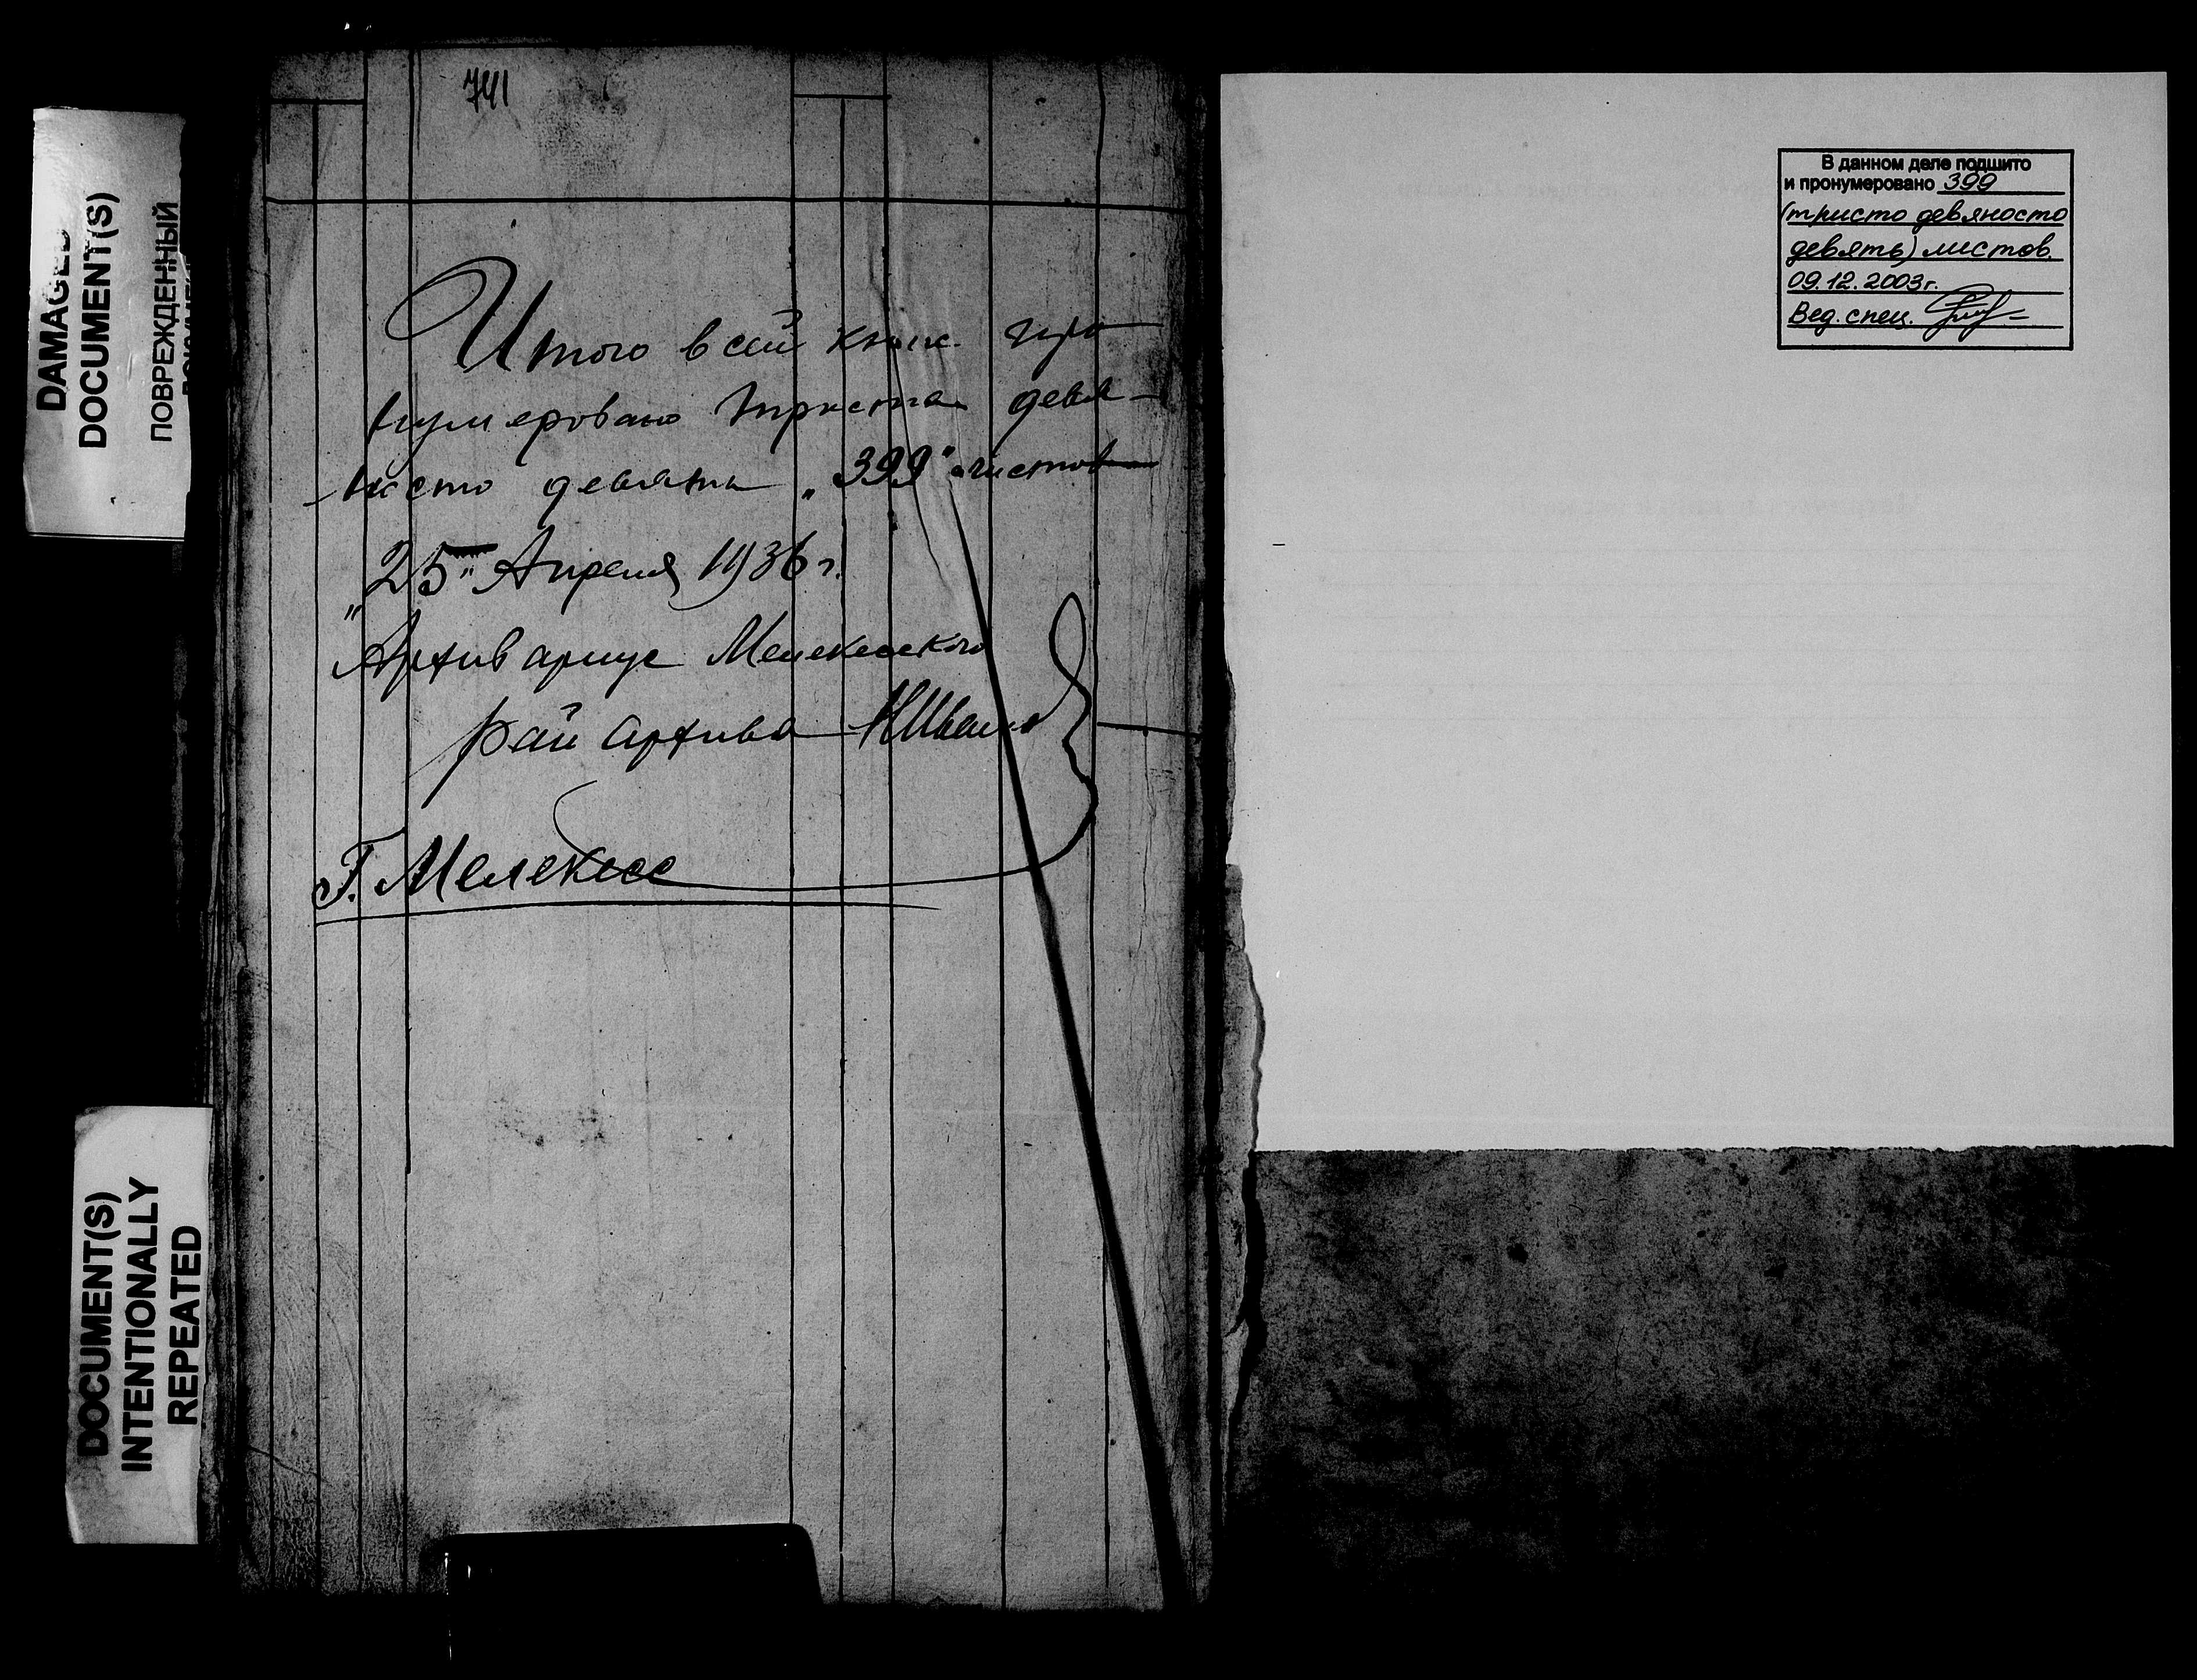 DAMAGED
DOCUMENT(S)
ПОВРЕЖДЕННЫЙ
DOCUMENT(S)
INTENTIONALLY
REPEATED
741
Итого в сей книге про
нумеровано триста девя-
носто девять „399" листов
„25" Апреля 1936 г.
Архивариус Мелекесского
рай архива
Г. Мелекесс
В данном деле подшито
и пронумеровано 399
(тристо девяносто
девять) листов.
09.12.2003г.
Вед. спец.